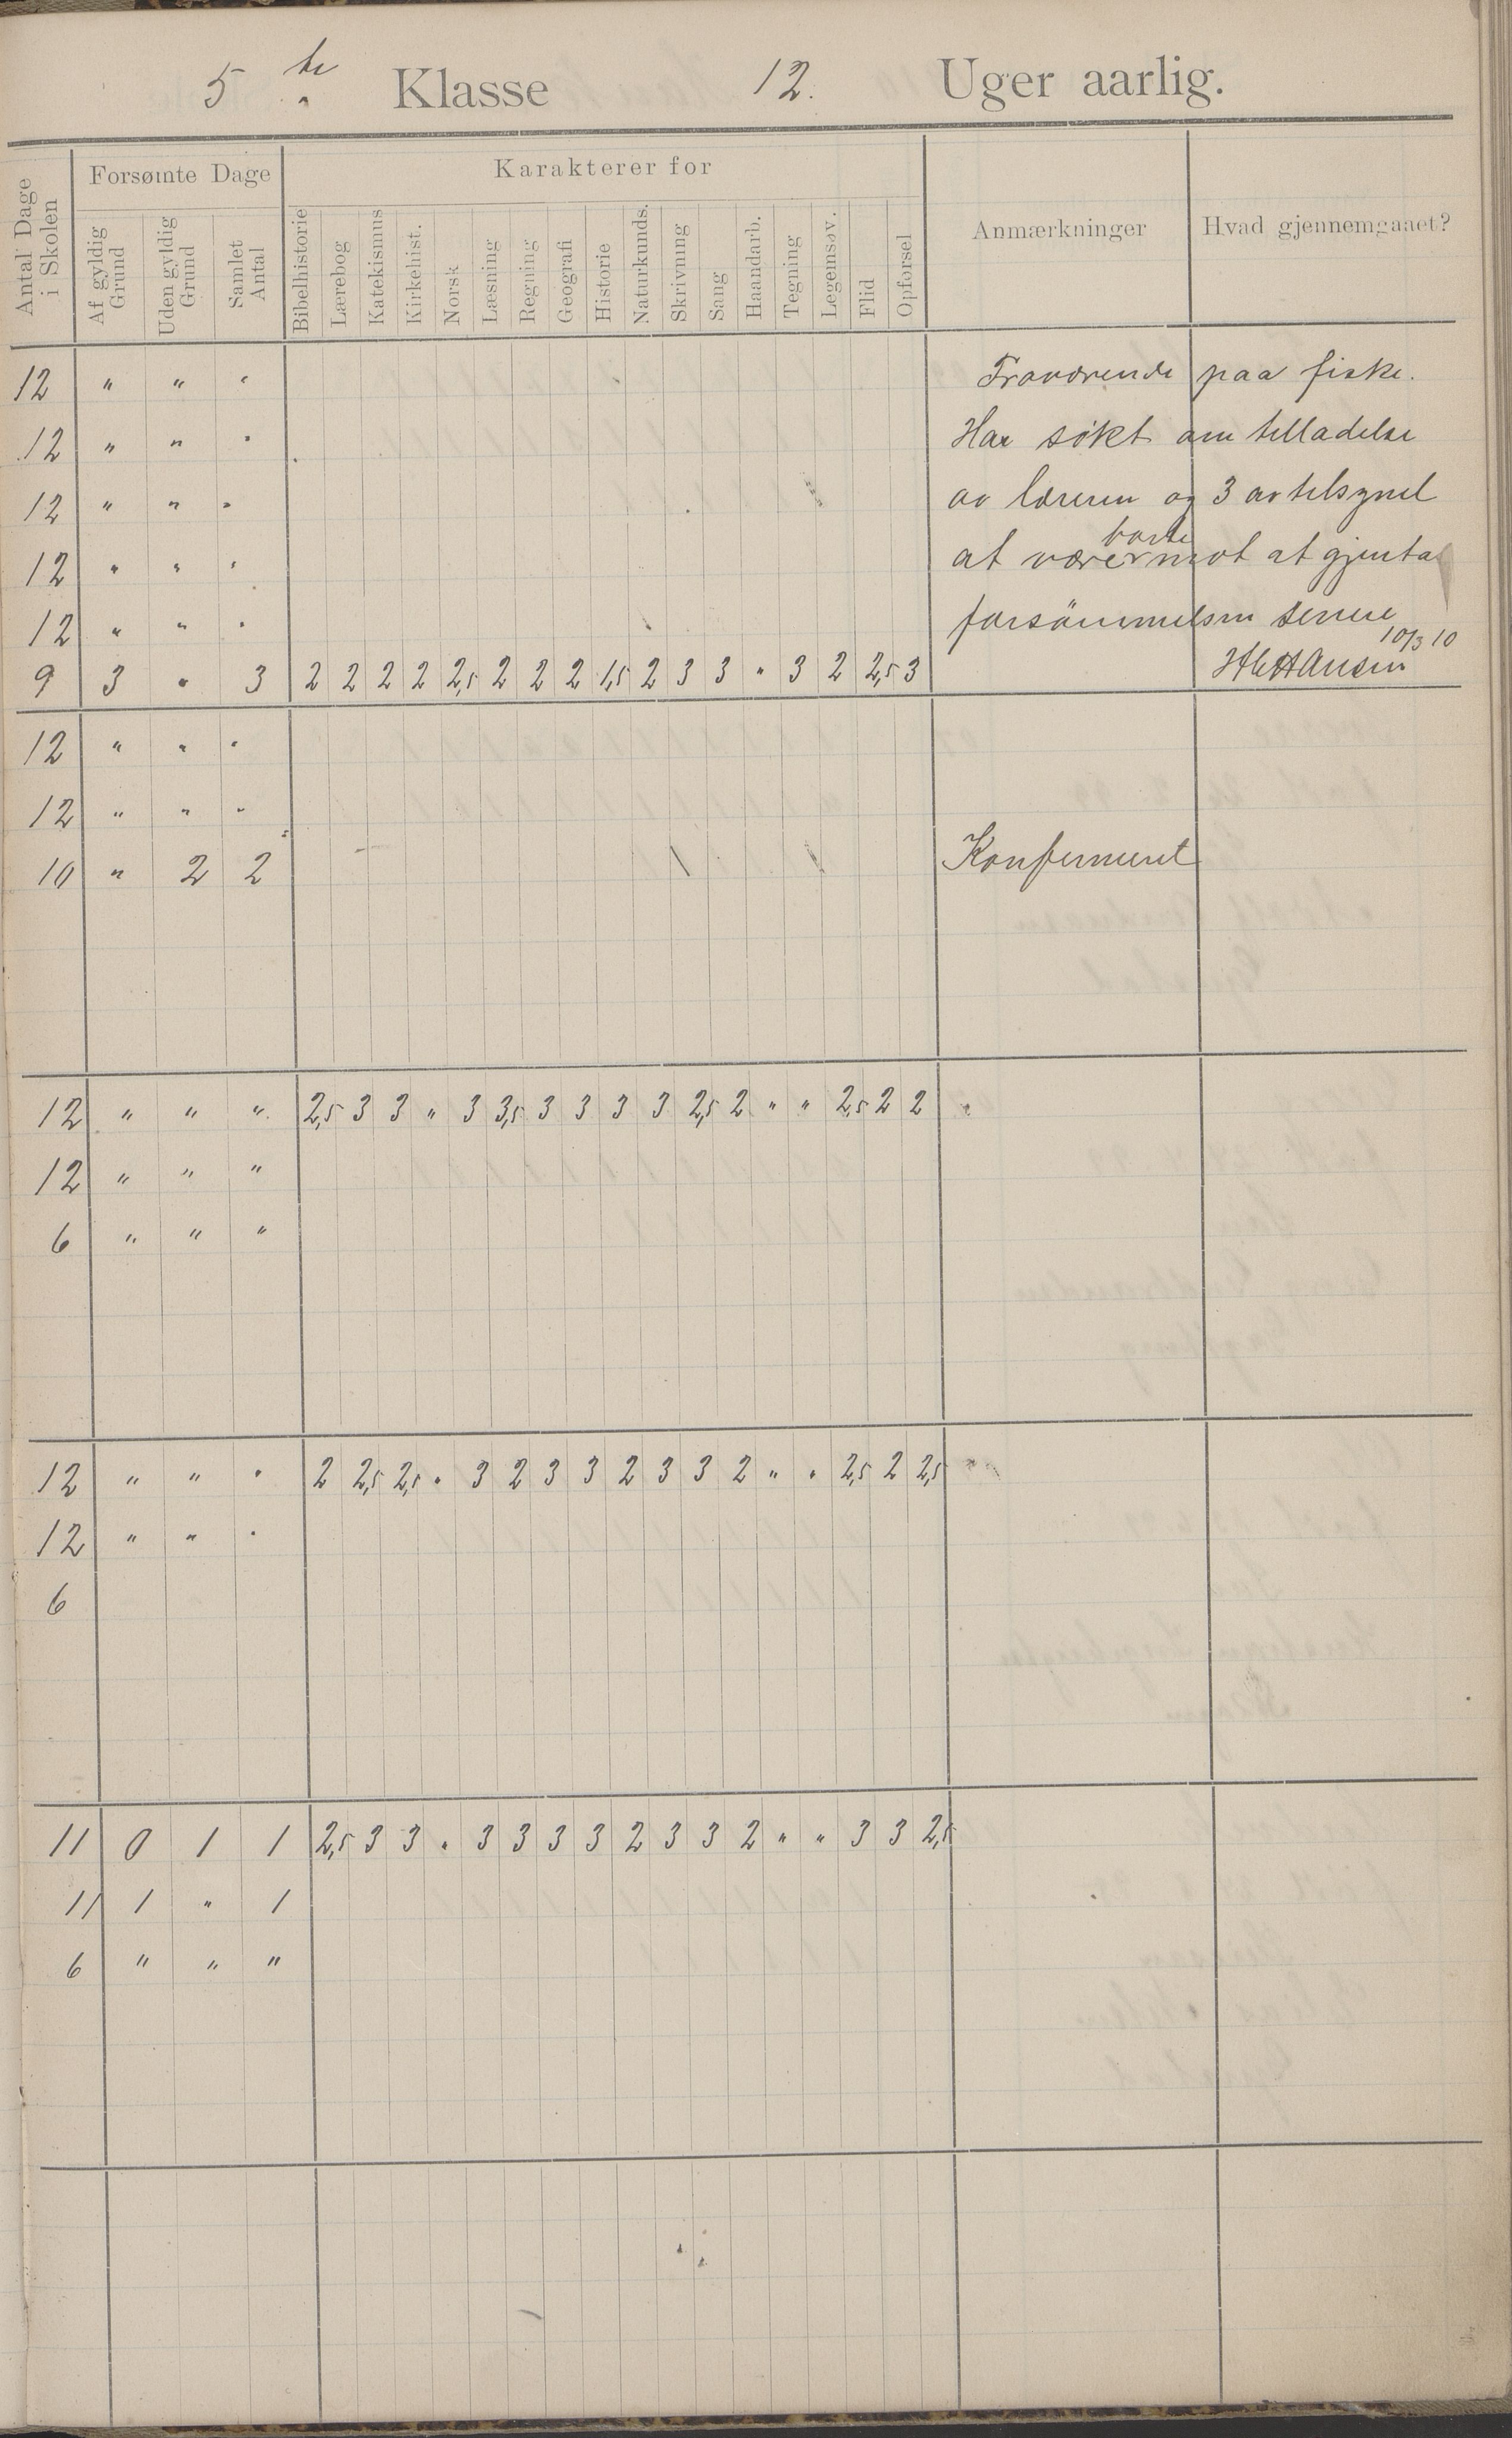 5 te Klasse 12. Uger aarlig.
Antal Dage i Skolen Forsømte Dage Karakterer for Anmærkninger Hvad gjennemgaaet?
Af gyldig Grund Uden gyldig Grund Samlet Antal Bibelhistorie Lærebog Katekismus Kirkehist. Norsk Læsning Regning Geografi Historie Naturkunds. Skrivning Sang Haandarb. Tegning Legemsøv. Flid Opførsel
12 " " " Fraværende paa fiske.
12 " " " Har søkt om tilladelse
12 " " " av læreren og 3 av tilsynet
12 " " " at være borte mot at gjenta
12 " " " forsømmelsen senere
10/3 10
9 3 " 3 2 2 2 2 2,5 2 2 2 1,5 2 3 3 " 3 2 2,5 3 Hansen
12 " " "
12 " " "
10 " 2 2 Konfirmeret
12 " " " 2,5 3 3 " 3 3,5 3 3 3 3 2,5 2 " " 2,5 2 2
12 " " "
6 " " "
12 " " " 2 2,5 2,5 " 3 2 3 3 2 3 3 2 " " 2,5 2 2,5
12 " " "
6
11 0 1 1 2,5 3 3 " 3 3 3 3 2 3 3 2 " " 3 3 2,5
11 1 " 1
6 " " "